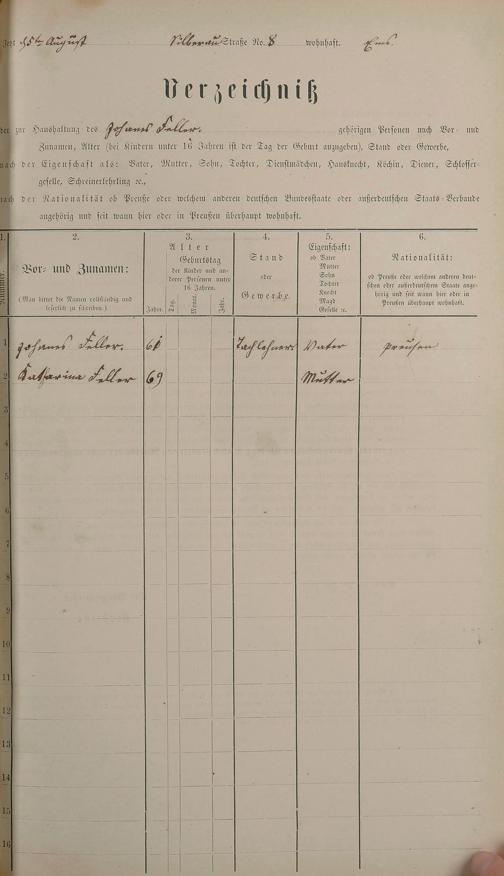 Jetzt d 5ten August Silberau Straße No. 8 wohnhaft. Ems.
Verzeichniß
der zur Haushaltung des Johanes Feller. gehörigen Personen nach Vor- und
Zunamen, Alter (bei Kindern unter 16 Jahren ist der Tag der Geburt anzugeben), Stand oder Gewerbe,
nach der Eigenschaft als: Vater, Mutter, Sohn, Tochter, Dienstmädchen, Hausknecht, Köchin, Diener, Schlosser-
geselle, Schreinerlehrling ec.,
nach der Nationalität ob Preuße oder welchem anderen deutschen Bundesstaate oder außerdeutschen Staats-Verbande
angehörig und seit wann hier oder in Preußen überhaupt wohnhaft.
1.
Nummer.
2.
Vor- und Zunamen:
(Man bittet die Namen vollständig und
leserlich zu schreiben.)
3.
Alter
Geburtstag
der Kinder und an-
derer Personen unter
16 Jahren.
Jahre.
Tag.
Monat.
Jahr.
4.
Stand
oder
Gewerbe.
5.
Eigenschaft:
ob Vater
Mutter
Sohn
Tochter
Knecht
Magd
Geselle ec.
6.
Nationalität:
ob Preuße oder welchem anderen deut-
schen oder außerdeutschen Staate ange-
hörig und seit wann hier oder in
Preußen überhaupt wohnhaft.
1 Johanes Feller. Taglehner Vater preusen
2 Katharina Feller 69 Mutter
3
4
5
6
7
8
9
10
11
12
13
14
15
16